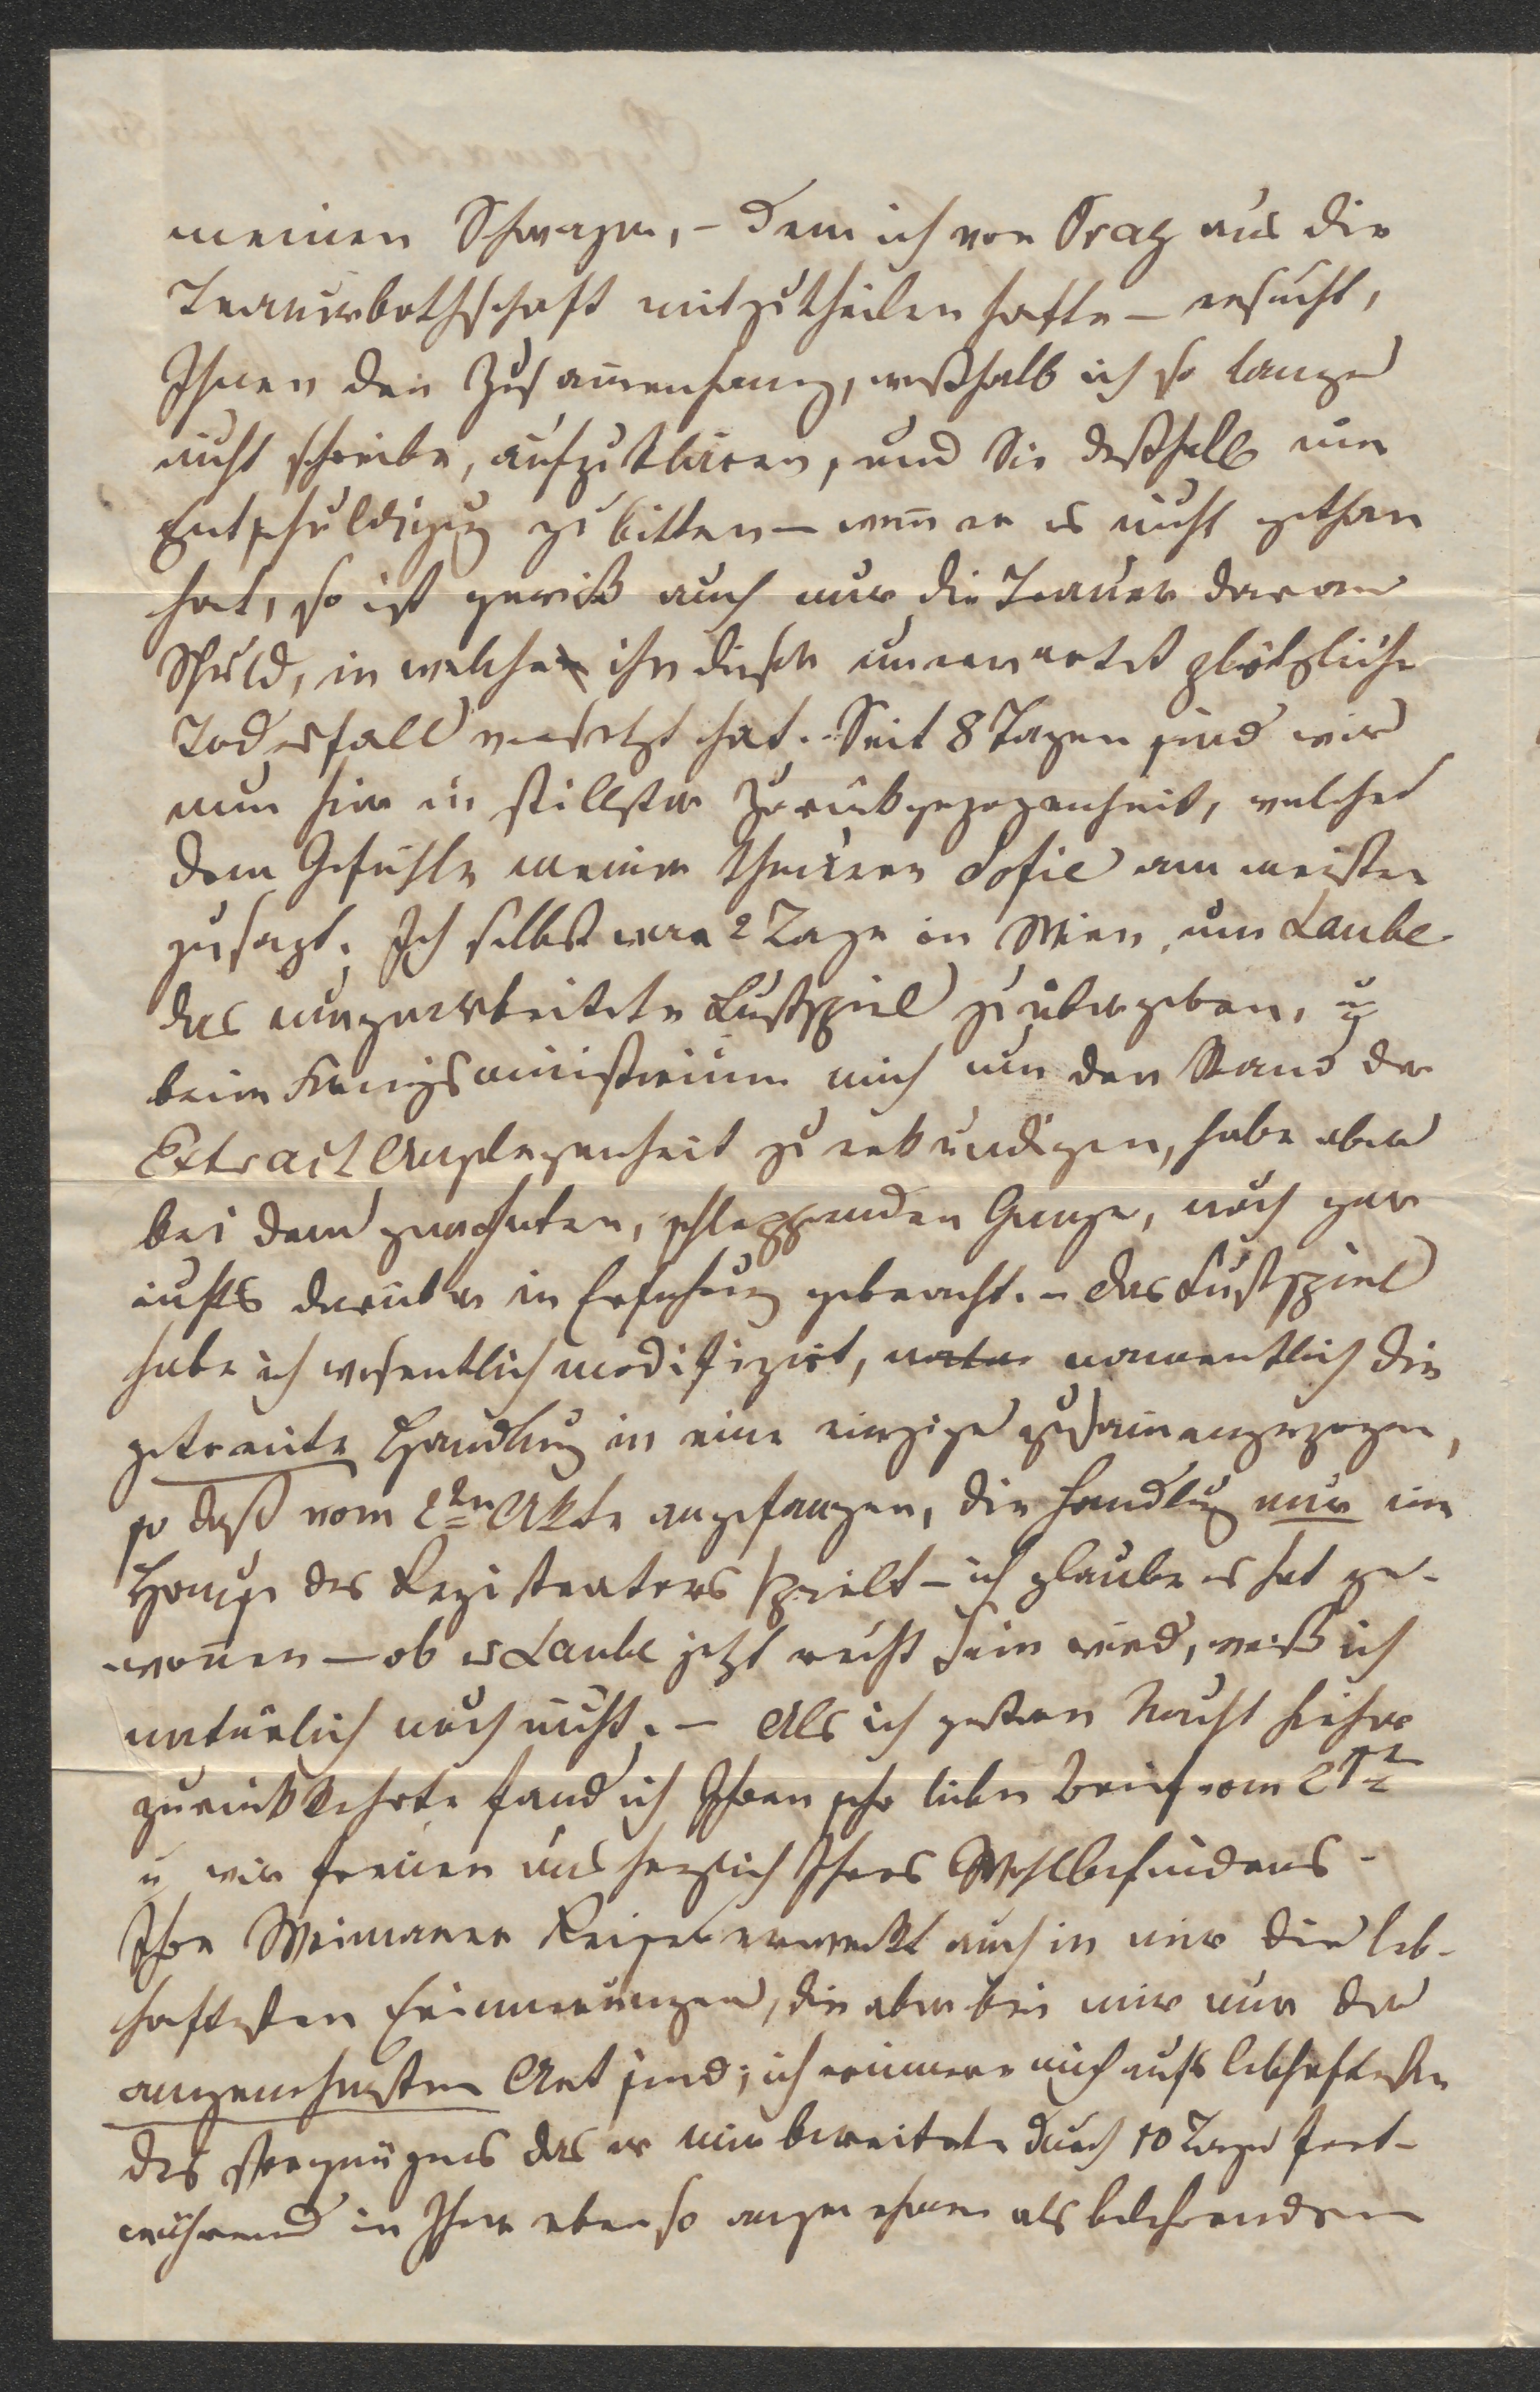 meinen Schwager, – dem ich von Prag aus die
Trauerbothschaft mitzutheilen hatte – ersucht,
Ihnen den Zusam̅enhang, weßhalb ich so lange
nicht schreibe, aufzuklären, und Sie deßhalb um
Entschuldigung zu bitten – wen̅ er es nicht gethan
hat, so ist gewiß auch nur die Trauer daran
Schuld, in welche ihn dieser unerwartet plötzliche
Todesfall versetzt hat. – Seit 8 Tagen sind wir
nun hier in stillster Zurückgezogenheit, welche
dem Gefühle meiner theueren Sofie am meisten
zusagt. Ich selbst war 2 Tage in Wien, um Laube
das umgearbeitete Lustspiel zu übergeben, u
beim Kriegsministerium mich um den Stand der
Extract Angelegenheit zu erkundigen, habe aber
bei dem gewohnten, schleppenden Gange, noch gar
nichts darüber in Erfahrung gebracht. – Das Lustspiel
habe ich wesentlich modifizirt, namentlich die
getrennte Handlung in eine einzige zusam̅engezogen,
so daß vom 2ten Akte angefangen, die Handlung nur im
Hause des Registrators spielt – ich glaube es hat ge-
won̅en – ob es Laube jetzt recht sein wird, weiß ich
natürlich noch nicht. – Als ich gestern Nacht hieher
zurückkehrte fand ich Ihren sehr lieben Brief vom 21t
u wir freuen uns herzlich Ihres Wohlbefindens –
Ihre Weimarer Reise erweckt auch in mir die leb-
haftesten Erinnerungen, die aber bei mir nur der
angenehmsten Art sind; ich erinnere mich aufs lebhafteste
des Vergnügens das es mir bereitete durch 10 Tage fort-
während in Ihrer eben so angenehmen als belehrenden